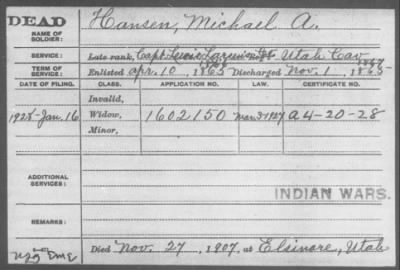 DEAD
NAME OF SOLDIER: Hansen, Michael A.
SERVICE: Late rank, Capt. Utah Cav
TERM OF SERVICE: Enlisted Apr. 10, 1865 1866 Discharged Nov. 1, 1865 1866
DATE OF FILING. CLASS. APPLICATION NO. LAW. CERTIFICATE NO.
Invalid,
1928-Jan. 16 Widow, 1602150 Mar 3 1927 A 4-20-28
Minor,
ADDITIONAL SERVICES:
INDIAN WARS.
REMARKS:
Died Nov. 27, 1907, at Elsinore, Utah